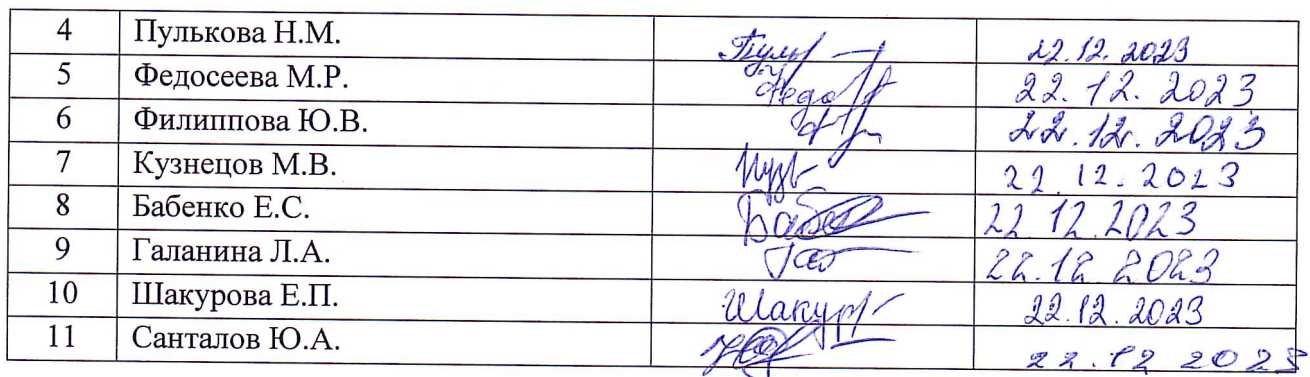 4 Пулькова Н.М. Пуль 22.12.2023
5 Федосеева М.Р. Федо 22.12.2023
6 Филиппова Ю.В. 22.12.2023
7 Кузнецов М.В. Куз 22.12.2023
8 Бабенко Е.С. Бабе 22 12.2023
9 Галанина Л.А. Гал 22.12 2023
10 Шакурова Е.П. Шакур 22.12.2023
11 Санталов Ю.А. 22.12 2023